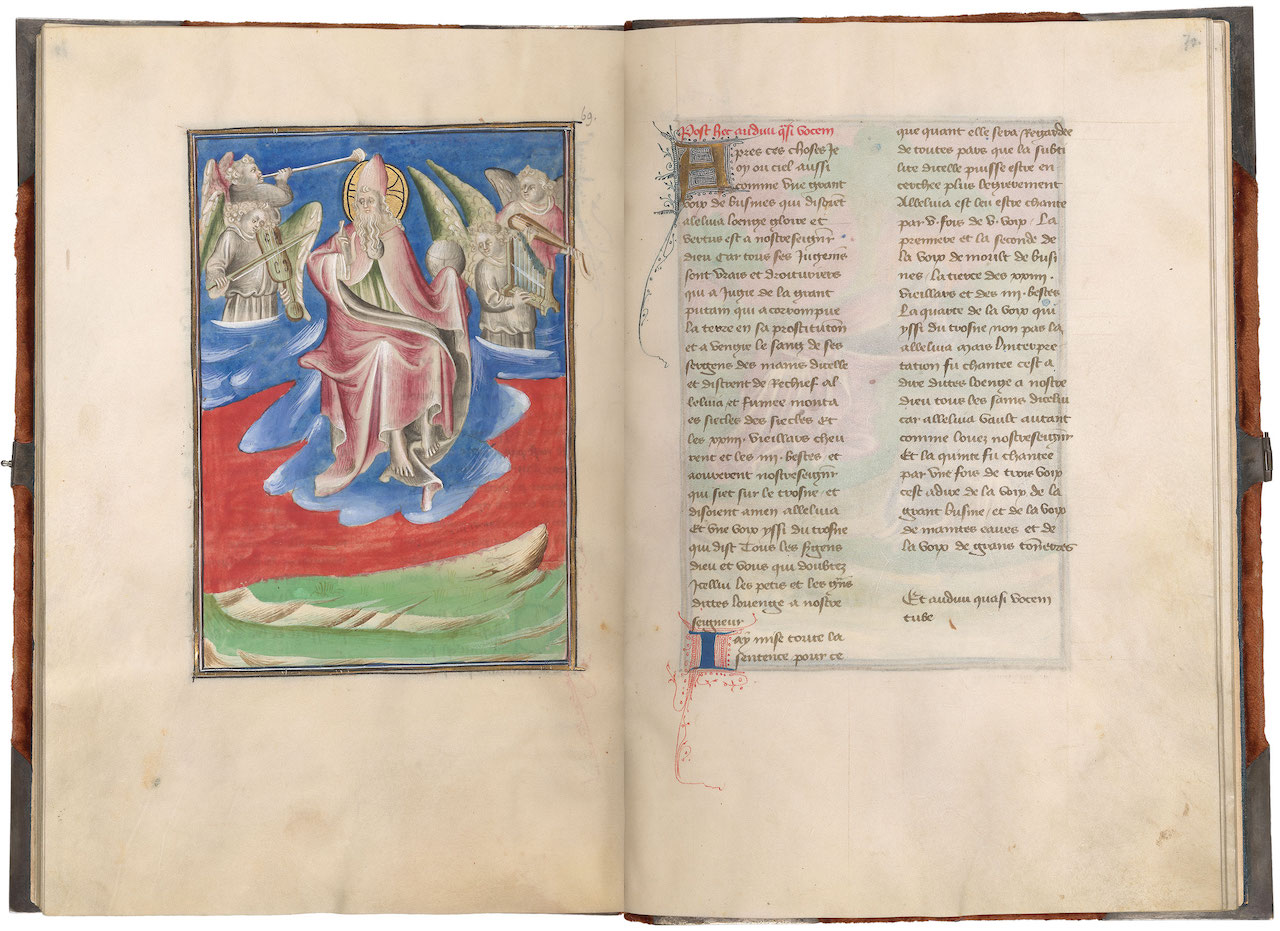 69.
70.
Post hec audiui q̃si vocem
Apres ces choses Je
oy ou ciel aussi
comme vne grant
voix de busines qui disoiẽt
aleluia loenge gloire et
vertus est a nostreseignr̃
dieu Car tous ses Jugem̃s
sont vrais et droituriers
qui a Jugie de la grant
putain qui a corrompue
la terre en sa prostitucõn
et a vengie le sang de ses
sergens des mains dicelle
et distrent de Rechief al
leluia et fumee monta
es siecles des siecles Et
les xxiiii. vieillars cheu
rent et les iiii. bestes et
aourerent nostreseignr̃
qui siet sur le trosne / et
disoient amen alleluia
Et vne voix yssi du trosne
qui dist Tous les s̃gens
dieu et vous qui doubtez
Jcellui les petis et les gr̃ns
dittes louenge a nostre
seigneur
Iay mise toute la
sentence pour ce
que quant elle sera Regardee
de toutes pars que la subti
lite dicelle puisse estre en
cerchee plus legierement
Alleluia est leu estre chante
par v. fois de v. voix / La
premiere et la seconde de
la voix de moult de busi
nes / la tierce des xxiiii.
vieillars et des iiii. bestes
La quarte de la voix qui
yssi du trosne / non pas la
alleluia mais linterpre
tation fu chantee cest a
dire dittes loenge a nostre
dieu tous les sains dicellui
car alleluia vault autant
comme louez nostreseignr̃
Et la quinte fu chantee
par vne fois de trois voix
cest adire de la voix de la
grant busine / et de la voix
de maintes eaues et de
la voix de grans tonnerres
Et audiui quasi vocem
tube